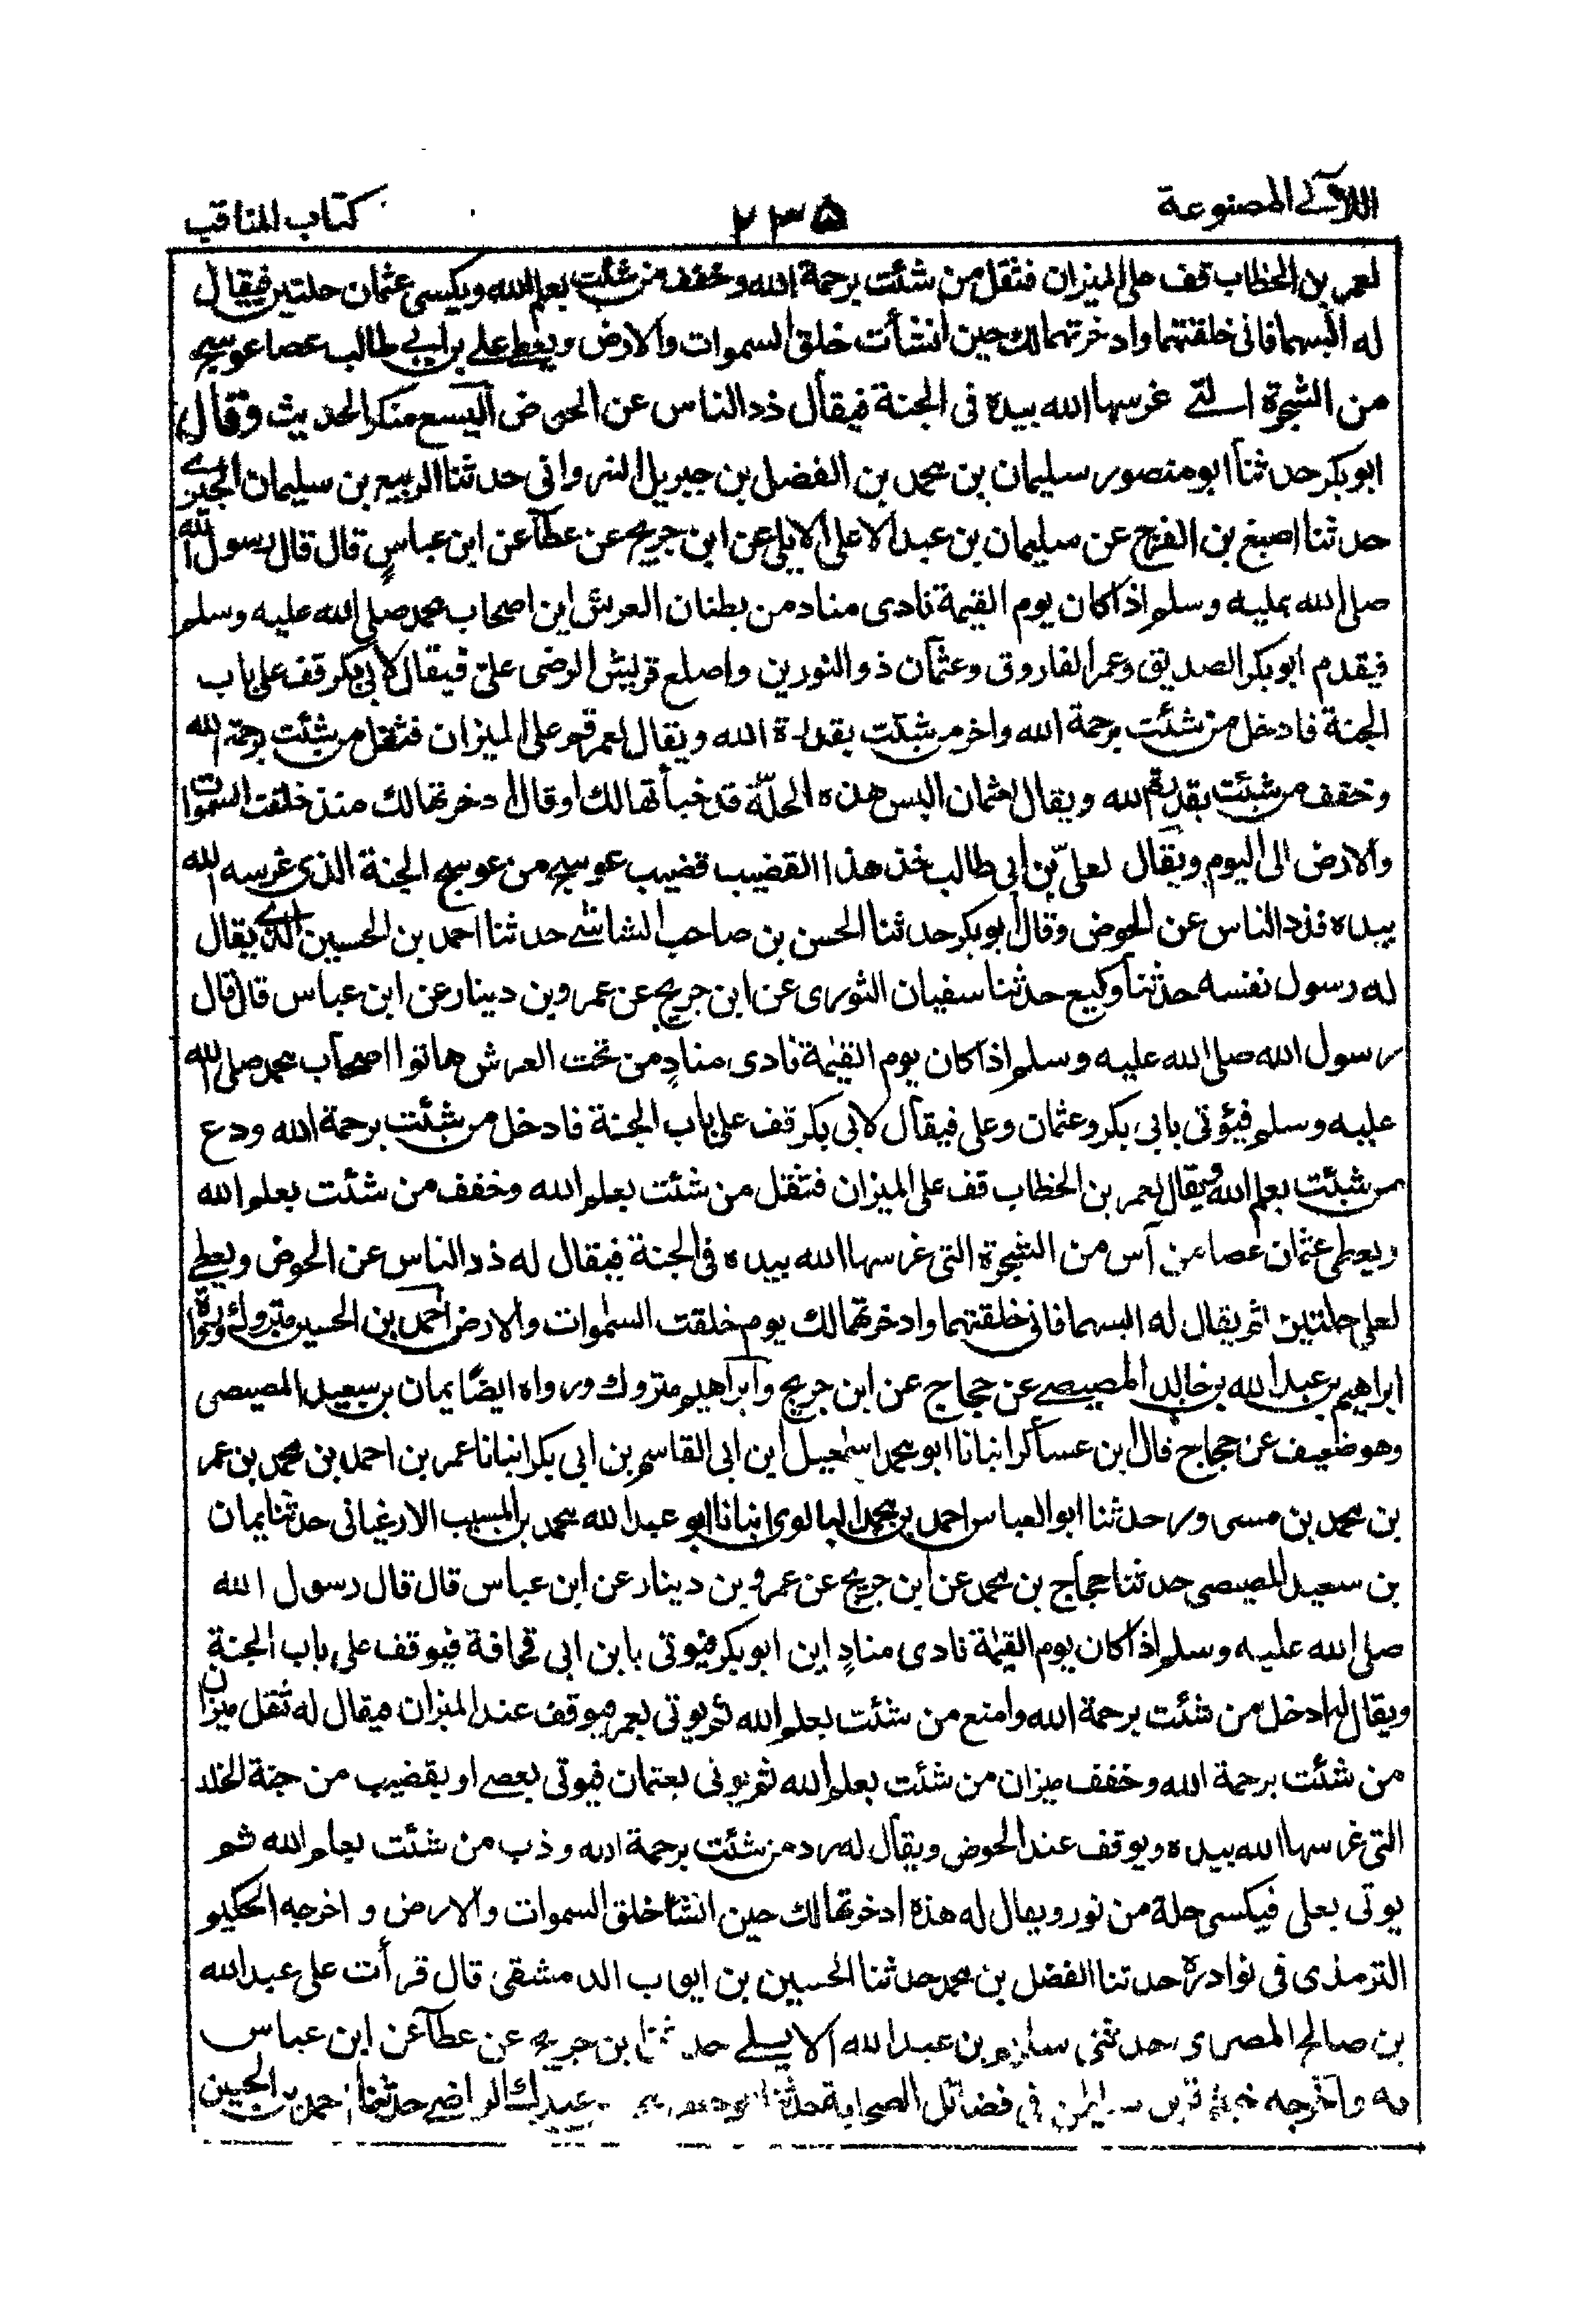 اللآلى المصنوعة ۲۳۵ كتاب المناقب
لعمر بن الخطاب قف على الميزان فثقل من شئت برحمة الله وخفف من شئت بعلم الله ويكسى عثمان حلتين فيقال
له البسهما فانى خلقتهما وادخرتهما لك حين انشأت خلق السموات والارض ويعطے علے بن ابے طالب عصا عوسج
من الشجرة التے غرسها الله بيده فى الجنة فيقال ذد الناس عن الحوض اليسع منكر الحديث وقال
ابو بكر حدثنا ابو منصور سليمان بن محمد بن الفضل بن جبريل النهروانى حدثنا الربيع بن سليمان الجيزے
حدثنا اصبغ بن الفرج عن سليمان بن عبد الاعلى الايلى عن ابن جريج عن عطآ عن ابن عباسٍ قال قال رسول الله
صلى الله عليه وسلم اذا كان يوم القيمة نادى مناد من بطنان العرش اين اصحاب محمد صلى الله عليه وسلم
فيقدم ابو بكر الصديق وعمر الفاروق وعثمان ذو النورين واصلع قريش الرضى علىّ فيقال لابى بكر قف على باب
الجنة فادخل من شئت برحمة الله واخر من شئت بقدرة الله ويقال لعمر قم على الميزان فثقل من شئت برحمة الله
وخفف من شئت بقدرة الله ويقال لعثمان البس هذه الحلّة قد خبأتها لك اوقال ادخرتها لك منذ خلقت السموات
والارض الى اليوم ويقال لعلىّ بن ابى طالب خذ هذا القضيب قضيب عوسج من عوسج الجنة الذى غرسه الله
بيده فذد الناس عن الحوض وقال ابو بكر حدثنا الحسن بن صاحب الشاشے حدثنا احمد بن الحسين الذے يقال
له رسول نفسه حدثنا وكيع حدثنا سفيان الثورى عن ابن جريج عن عمرو بن دينار عن ابن عباس قال قال
رسول الله صلى الله عليه وسلم اذا كان يوم القيٰمة نادى منادٍ من تحت العرش هاتوا اصحاب محمد صلى الله
عليه وسلم فيؤتى بابى بكر وعثمان وعلى فيقال لابى بكر قف على باب الجنة فادخل من شئت برحمة الله ودع
من شئت بعلم الله ويقال لعمر بن الخطاب قف على الميزان فثقل من شئت بعلم الله وخفف من شئت بعلم الله
ويعطى عثمان عصا من آس من الشجرة التى غرسها الله بيده فى الجنة فيقال له ذد الناس عن الحوض ويعطے
لعلى حلتين ثم يقال له البسهما فانى خلقتهما وادخرتهما لك يوم خلقت السمٰوات والارض احمد بن الحسين متروك ورواه
ابراهيم بن عبد الله بن خالد المصيصے عن حجاج عن ابن جريج وابراهيم متروك ورواه ايضًا يمان بن سعيد المصيصى
وهو ضعيف عن حجاج قال ابن عساكر انبانا ابو محمد اسمٰعيل ابن ابى القاسم بن ابى بكر انبانا عمر بن احمد بن محمد بن عمر
بن محمد بن مسرور حدثنا ابو العباس احمد بن محمد البالوى انبانا ابو عبد الله محمد بن المسيب الارغيانى حدثنا يمان
بن سعيد المصيصى حدثنا حجاج بن محمد عن ابن جريج عن عمرو بن دينار عن ابن عباس قال قال رسول الله
صلى الله عليه وسلم اذا كان يوم القيٰمة نادى منادٍ اين ابو بكر فيوتى بابن ابى قحافة فيوقف على باب الجنة
ويقال له ادخل من شئت برحمة الله وامنع من شئت بعلم الله ثم يوتى بعمر فيوقف عند الميزان فيقال له ثقل ميزان
من شئت برحمة الله وخفف ميزان من شئت بعلم الله ثم يوتى بعثمان فيوتى بعصے او بقضيب من جنة الخلد
التى غرسها الله بيده ويوقف عند الحوض ويقال له رد من شئت برحمة الله وذب من شئت بعلم الله ثم
يوتى بعلى فيكسى حلة من نور ويقال له هذه ادخرتها لك حين انشأ خلق السموات والارض و اخرجه الحكيم
الترمذى فى نوادره حدثنا الفضل بن محمد حدثنا الحسين بن ايوب الدمشقى قال قرأت على عبد الله
بن صالح المصرى حدثنى بن عبد الله الايلے حدثنا ابن جريج عن عطآ عن ابن عباس
به واخرجه خيثمة بن سليمٰن فى فضائل الصحابة حدثنا حدثنا احمد بن الحسين